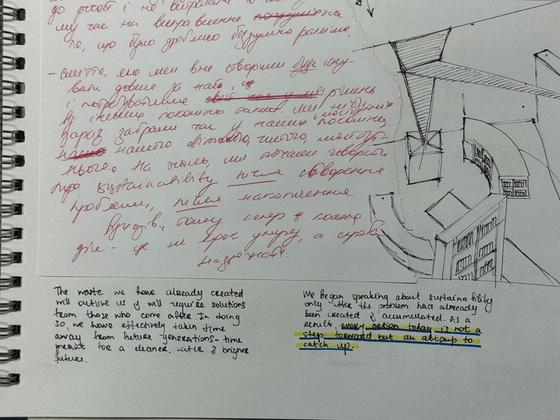 до роботи і не витрачати
му час на виправлення
те, що було зроблено бездумно раніше
- сміття, яке ми вже створили буде існу-
вати довше за нас, і
і потребуватиме рішень
від
зараз забрали час у наших наступників
нашого чистого, майбут-
нього. На жаль, ми почали говорити
про sustainability після створення
проблеми, після накопичення
тепер є кожна
дія - це не крок уперед, а спроба
наздогнати.
The waste we have already created
will outlive us & will require solutions
from those who come after. In doing
so, we have effectively taken time
away from future generations - time
meant for a cleaner, safer & brighter
future.
We began speaking about sustainability
only after the problem had already
been created & accumulated. As a
result, every action today is not a
step forward but an attempt to
catch up.